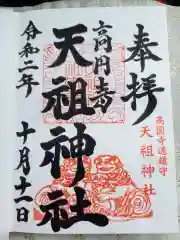 奉拝
高円寺
天祖神社
高圓寺總鎮守
天祖神社
令和二年
十月十一日